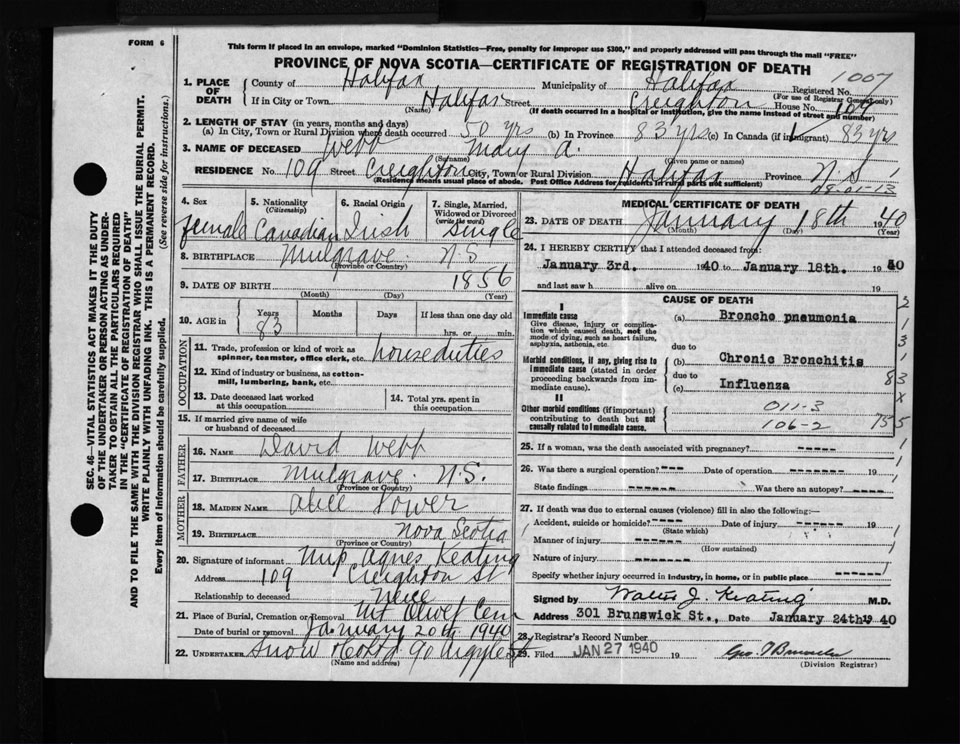 FORM 6
This form if placed in an envelope, marked "Dominion Statistics—Free, penalty for improper use $300," and properly addressed will pass through the mail "FREE"
PROVINCE OF NOVA SCOTIA—CERTIFICATE OF REGISTRATION OF DEATH
SEC. 46—VITAL STATISTICS ACT MAKES IT THE DUTY
OF THE UNDERTAKER OR PERSON ACTING AS UNDER-
TAKER TO OBTAIN ALL THE PARTICULARS REQUIRED
IN THE "CERTIFICATE OF REGISTRATION OF DEATH"
AND TO FILE THE SAME WITH THE DIVISION REGISTRAR WHO SHALL ISSUE THE BURIAL PERMIT.
WRITE PLAINLY WITH UNFADING INK. THIS IS A PERMANENT RECORD.
Every item of information should be carefully supplied. (See reverse side for instructions.)
1. PLACE OF DEATH County of Halifax Municipality of Halifax Registered No. 1007
(For use of Registrar General only)
If in City or Town Halifax Street Creighton House No. 109
(Name) (If death occurred in a hospital or institution, give the name instead of street and number)
2. LENGTH OF STAY (in years, months and days)
(a) In City, Town or Rural Division where death occurred 50 yrs (b) In Province 83 yrs (c) In Canada (if immigrant) 83 yrs
3. NAME OF DECEASED Webb Mary A.
(Surname) (Given name or names)
RESIDENCE No. 109 Street Creighton City, Town or Rural Division Halifax Province N.S
(Residence means usual place of abode. Post Office Address for residents in rural parts not sufficient)
28-01-13
4. Sex female
5. Nationality (Citizenship) Canadian
6. Racial Origin Irish
7. Single, Married, Widowed or Divorced (write the word) Single
8. BIRTHPLACE Mulgrave N.S
(Province or Country)
9. DATE OF BIRTH 1856
(Month) (Day) (Year)
10. AGE in Years 83 Months Days If less than one day old
hrs. or min.
OCCUPATION
11. Trade, profession or kind of work as spinner, teamster, office clerk, etc. house duties
12. Kind of industry or business, as cotton-mill, lumbering, bank, etc.
13. Date deceased last worked at this occupation
14. Total yrs. spent in this occupation
15. If married give name of wife or husband of deceased
FATHER
16. NAME David Webb
17. BIRTHPLACE Mulgrave N.S.
(Province or Country)
MOTHER
18. MAIDEN NAME Power
19. BIRTHPLACE Nova Scotia
(Province or Country)
20. Signature of informant Agnes Keating
Address 109 Creighton St
Relationship to deceased Neice
21. Place of Burial, Cremation or Removal Mt Olivet Cem
Date of burial or removal January 20th 1940
22. UNDERTAKER Snow 90 Argyle St
(Name and address)
MEDICAL CERTIFICATE OF DEATH
23. DATE OF DEATH January 18th 1940
(Month) (Day) (Year)
24. I HEREBY CERTIFY that I attended deceased from:
January 3rd. 1940 to January 18th. 1940
and last saw h alive on 19
CAUSE OF DEATH
I
Immediate cause
Give disease, injury or complication which caused death, not the mode of dying, such as heart failure, asphyxia, asthenia, etc.
(a) Broncho pneumonia
due to
Morbid conditions, if any, giving rise to immediate cause (stated in order proceeding backwards from immediate cause).
(b) Chronic Bronchitis
due to
(c) Influenza
II
Other morbid conditions (if important) contributing to death but not causally related to immediate cause.
011-3
106-2
25. If a woman, was the death associated with pregnancy? ----
26. Was there a surgical operation? ---- Date of operation ------- 19
State findings ------ Was there an autopsy? ----
27. If death was due to external causes (violence) fill in also the following:—
Accident, suicide or homicide? ----- Date of injury ------ 19
(State which)
Manner of injury ------
(How sustained)
Nature of injury ------
Specify whether injury occurred in industry, in home, or in public place ------
Signed by Walter J. Keating M.D.
Address 301 Brunswick St., Date January 24th 1940
28. Registrar's Record Number
29. Filed JAN 27 1940 19
(Division Registrar)